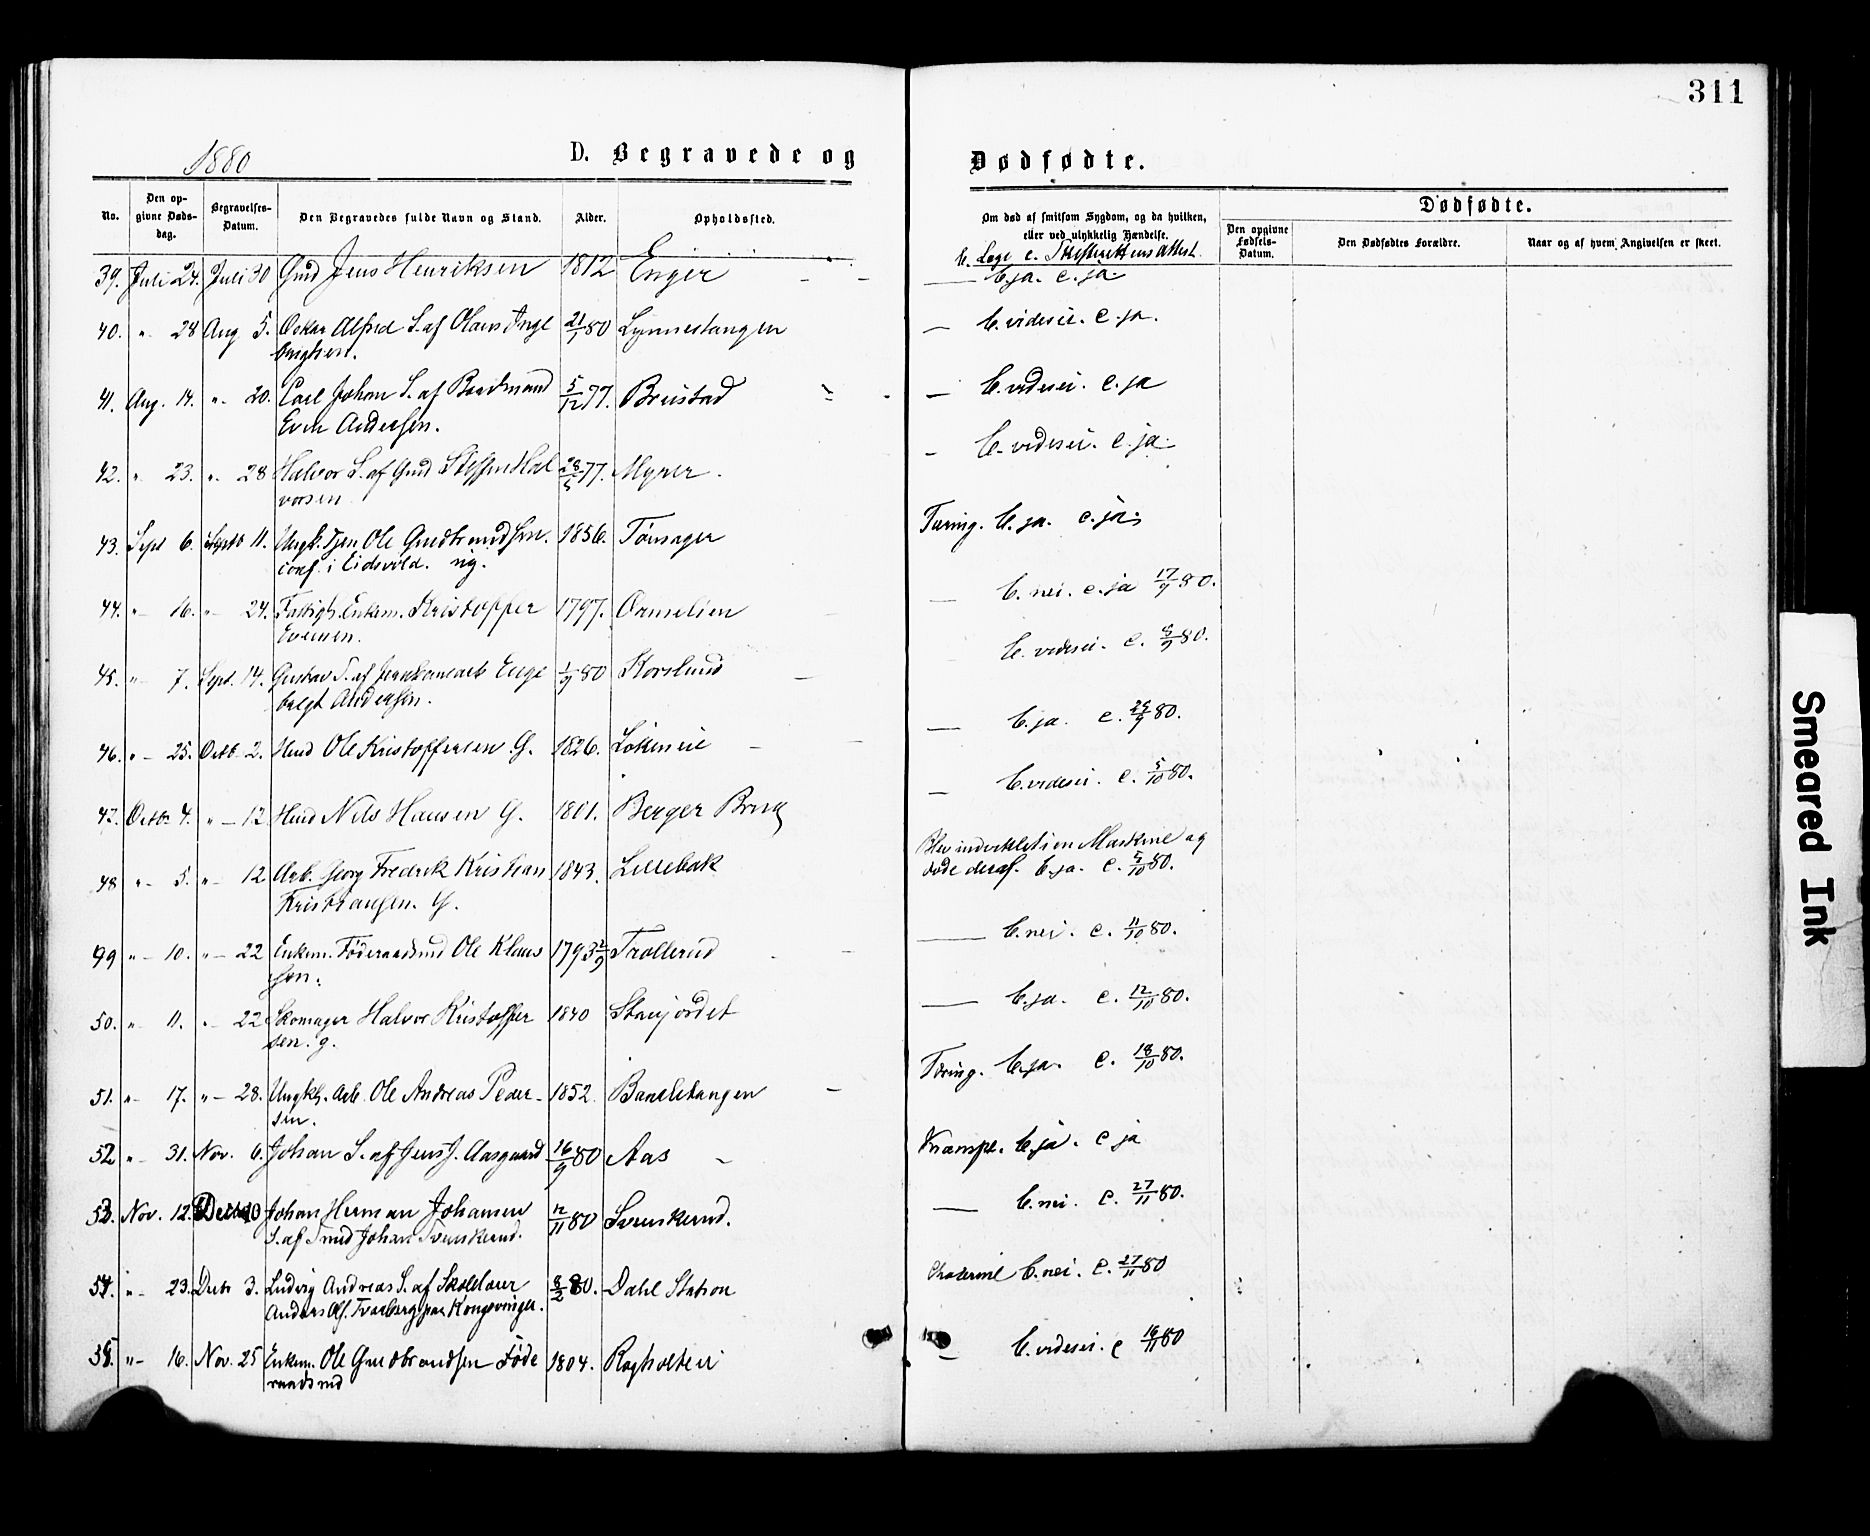 311
1880
D. Begravede og Dødfødte.
No. Den opgivne Dødsdag. Begravelses-Datum. Den Begravedes fulde Navn og Stand. Alder. Opholdssted. Om død af smitsom Sygdom, og da hvilken, eller ved ulykkelig Hændelse. Dødfødte.
Den opgivne Fødsels-Datum. Den Dødfødtes Forældre. Naar og af hvem Angivelsen er skeet.
b. Læge c. Skifterettens Attest
39. Juli 24. Juli 30 Gmd Jens Henriksen 1812 Enger — b. ja. c. ja
40. " 28 Aug 5. Oskar Alfred S. af Olaus Inge 21/1 80 Lynnestangen — b. videsei. c. ja.
brigtsen.
41. Aug. 14. " 20. Carl Johan S. af 5/12 77. Breistad — b. videsei. c. ja
Even Andersen.
42. " 23. " 28 Halvor S. af Gmd Steffen Hal 77. Myrer — b. videsei. c. ja.
vorsen
43. Sept 6. Septb 11. Ungk. Tjen Ole Gudbrandsen. 1856. Tørnager Tæring. b. ja. c. ja.
conf. i Eidsvold. ug.
44. " 16. " 24. Fattigh. Enkem. Kristoffer 1797. Ormelien — b. nei. c. ja 17/9 80.
Evensen.
45. " 7. Sept. 14. Gustav S. af Enge 1/9 80 Korslund b. videsei. c. 80.
bregt Andersen.
46. " 25. Octb 2. Hmd Ole Kristoffersen G. 1826. Løkeneie — b. ja. c. 80.
47. Octbr 4. " 12 Hmd Nils Hansen G. 1801. Berger Brug — b. videsei. c. 5/10 80.
48 " 5. " 12 Arb. Georg Fredrik Kristian 1843. Lillebæk Blev indviklet i en Maskine og
Kristiansen. G. døde deraf. b. ja. c. 5/10 80.
49 " 10. " 22 Enkem. Føderaadsmd Ole Klaus 1793 Trollerud — b. nei. c. 11/10 80.
sen.
50. " 11. " 22 Skomager Halvor Kristoffer 1840 Stenjordet — b. ja. c. 12/10 80.
sen. g.
51. " 17. " 28. Ungk. Arb. Ole Andreas Peder- 1852. Tæring. b. ja. c. 18/10 80.
sen.
52 " 31. Nov. 6. Johan S. af Jens J. Aasgaard 16/9 80 Aas Krampe. b. ja. c ja
53. Nov. 12. Johan Herman Johansen 12/11 80 Svenskerud. — b. nei. c. 27/11 80.
S. af Gmd Johan Svenskerud.
54. " 23. Decbr 3. Ludvig Andreas S. af Skolelærer 8/2 80. Dahl Station b. nei. c. 27/11 80
Anders Kongsvinger.
55. " 16. Nov. 25 Enkem. Ole Gudbrandsen Føde 1804. Rogholteie — b. videsei. c 16/11 80
raadsmd
Smeared Ink